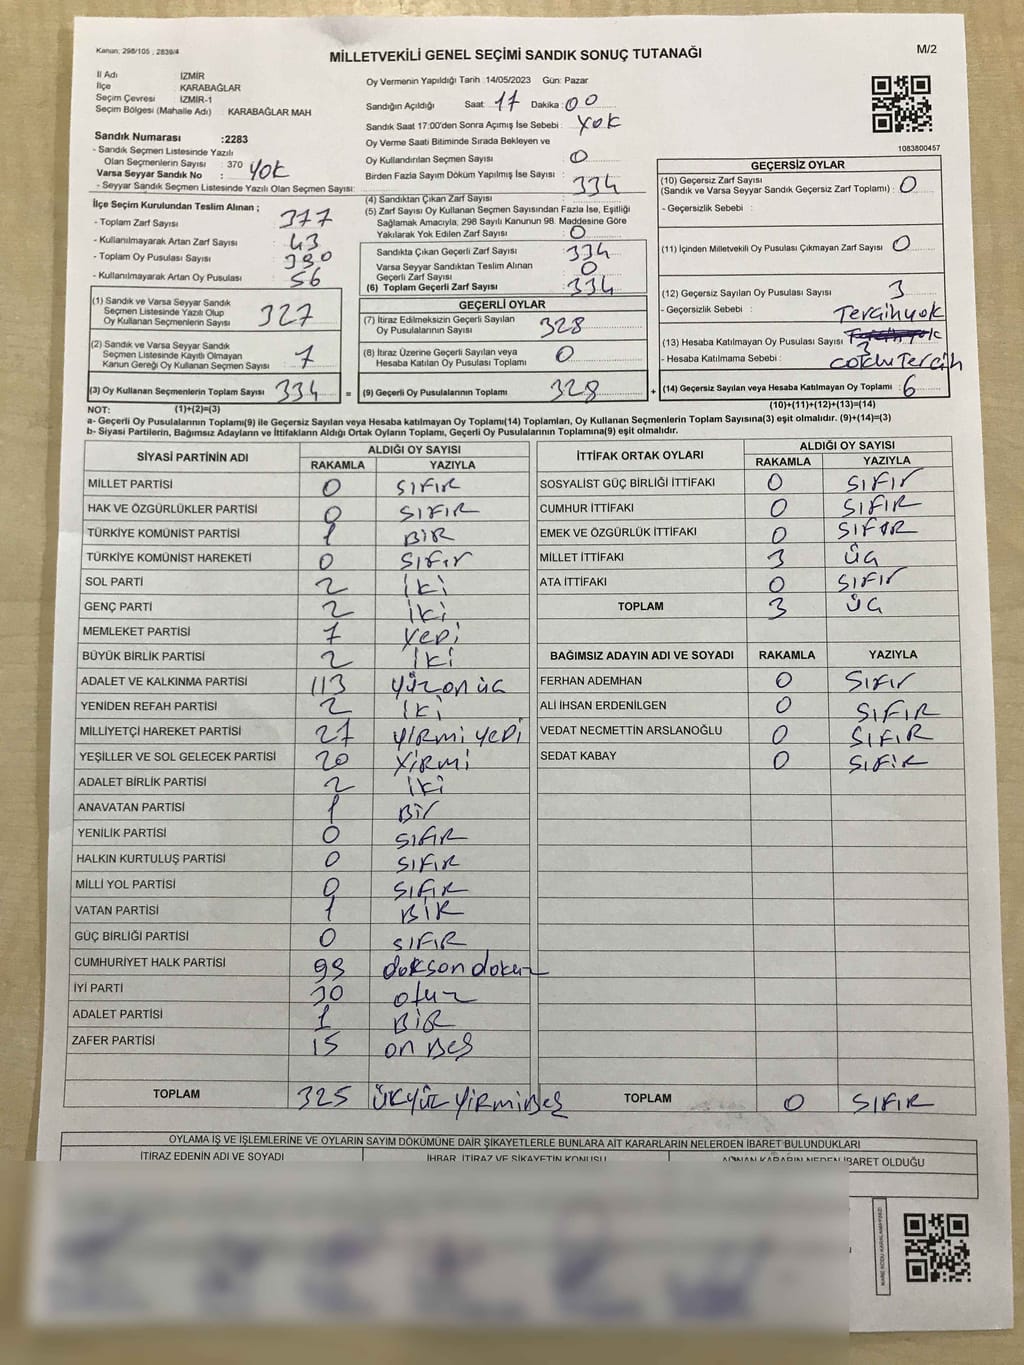 Kanun; 298/105 , 2839/4
MİLLETVEKİLİ GENEL SEÇİMİ SANDIK SONUÇ TUTANAĞI
M/2
İl Adı İZMİR
İlçe KARABAĞLAR
Seçim Çevresi İZMİR-1
Seçim Bölgesi (Mahalle Adı) KARABAĞLAR MAH
Sandık Numarası :2283
- Sandık Seçmen Listesinde Yazılı
Olan Seçmenlerin Sayısı : 370
Varsa Seyyar Sandık No : YOK
- Seyyar Sandık Seçmen Listesinde Yazılı Olan Seçmen Sayısı:
Oy Vermenin Yapıldığı Tarih :14/05/2023 Gün: Pazar
Sandığın Açıldığı Saat : 17 Dakika : 00
Sandık Saat 17:00'den Sonra Açımış İse Sebebi : YOK
Oy Verme Saati Bitiminde Sırada Bekleyen ve
Oy Kullandırılan Seçmen Sayısı : 0
Birden Fazla Sayım Döküm Yapılmış İse Sayısı :
1083800457
İlçe Seçim Kurulundan Teslim Alınan ;
- Toplam Zarf Sayısı : 377
- Kullanılmayarak Artan Zarf Sayısı : 43
- Toplam Oy Pusulası Sayısı : 390
- Kullanılmayarak Artan Oy Pusulası : 56
(1) Sandık ve Varsa Seyyar Sandık
Seçmen Listesinde Yazılı Olup
Oy Kullanan Seçmenlerin Sayısı : 327
(2) Sandık ve Varsa Seyyar Sandık
Seçmen Listesinde Kayıtlı Olmayan
Kanun Gereği Oy Kullanan Seçmen Sayısı : 7
(3) Oy Kullanan Seçmenlerin Toplam Sayısı : 334
(4) Sandıktan Çıkan Zarf Sayısı : 334
(5) Zarf Sayısı Oy Kullanan Seçmen Sayısından Fazla İse, Eşitliği
Sağlamak Amacıyla; 298 Sayılı Kanunun 98. Maddesine Göre
Yakılarak Yok Edilen Zarf Sayısı : 0
Sandıkta Çıkan Geçerli Zarf Sayısı : 334
Varsa Seyyar Sandıktan Teslim Alınan
Geçerli Zarf Sayısı : 0
(6) Toplam Geçerli Zarf Sayısı : 334
GEÇERLİ OYLAR
(7) İtiraz Edilmeksizin Geçerli Sayılan
Oy Pusulalarının Sayısı : 328
(8) İtiraz Üzerine Geçerli Sayılan veya
Hesaba Katılan Oy Pusulası Sayısı : 0
= (9) Geçerli Oy Pusulalarının Toplamı : 328 +
GEÇERSİZ OYLAR
(10) Geçersiz Zarf Sayısı
(Sandık ve Varsa Seyyar Sandık Geçersiz Zarf Toplamı) : 0
- Geçersizlik Sebebi :
(11) İçinden Milletvekili Oy Pusulası Çıkmayan Zarf Sayısı : 0
(12) Geçersiz Sayılan Oy Pusulası Sayısı : 3
- Geçersizlik Sebebi : Tercih yok
(13) Hesaba Katılmayan Oy Pusulası Sayısı : 3
- Hesaba Katılmama Sebebi : çoklu Tercih
(14) Geçersiz Sayılan veya Hesaba Katılmayan Oy Toplamı : 6
NOT: (1)+(2)=(3) (10)+(11)+(12)+(13)=(14)
a- Geçerli Oy Pusulalarının Toplamı(9) ile Geçersiz Sayılan veya Hesaba katılmayan Oy Toplamı(14) Toplamları, Oy Kullanan Seçmenlerin Toplam Sayısına(3) eşit olmalıdır. (9)+(14)=(3)
b- Siyasi Partilerin, Bağımsız Adayların ve İttifakların Aldığı Ortak Oyların Toplamı, Geçerli Oy Pusulalarının Toplamına(9) eşit olmalıdır.
SİYASİ PARTİNİN ADI ALDIĞI OY SAYISI
RAKAMLA YAZIYLA
MİLLET PARTİSİ 0 SIFIR
HAK VE ÖZGÜRLÜKLER PARTİSİ 0 SIFIR
TÜRKİYE KOMÜNİST PARTİSİ 1 BİR
TÜRKİYE KOMÜNİST HAREKETİ 0 SIFIR
SOL PARTİ 2 İKİ
GENÇ PARTİ 2 İKİ
MEMLEKET PARTİSİ 7 YEDİ
BÜYÜK BİRLİK PARTİSİ 2 İKİ
ADALET VE KALKINMA PARTİSİ 113 YÜZ on üç
YENİDEN REFAH PARTİSİ 2 İKİ
MİLLİYETÇİ HAREKET PARTİSİ 27 YİRMİ YEDİ
YEŞİLLER VE SOL GELECEK PARTİSİ 20 YİRMİ
ADALET BİRLİK PARTİSİ 2 İKİ
ANAVATAN PARTİSİ 1 BİR
YENİLİK PARTİSİ 0 SIFIR
HALKIN KURTULUŞ PARTİSİ 0 SIFIR
MİLLİ YOL PARTİSİ 0 SIFIR
VATAN PARTİSİ 1 BİR
GÜÇ BİRLİĞİ PARTİSİ 0 SIFIR
CUMHURİYET HALK PARTİSİ 99 doksan dokuz
İYİ PARTİ 30 otuz
ADALET PARTİSİ 1 BİR
ZAFER PARTİSİ 15 on BEŞ
TOPLAM 325 ÜÇYÜZ YİRMİBEŞ
İTTİFAK ORTAK OYLARI ALDIĞI OY SAYISI
RAKAMLA YAZIYLA
SOSYALİST GÜÇ BİRLİĞİ İTTİFAKI 0 SIFIR
CUMHUR İTTİFAKI 0 SIFIR
EMEK VE ÖZGÜRLÜK İTTİFAKI 0 SIFIR
MİLLET İTTİFAKI 3 üç
ATA İTTİFAKI 0 SIFIR
TOPLAM 3 üç
BAĞIMSIZ ADAYIN ADI VE SOYADI RAKAMLA YAZIYLA
FERHAN ADEMHAN 0 SIFIR
ALİ İHSAN ERDENİLGEN 0 SIFIR
VEDAT NECMETTİN ARSLANOĞLU 0 SIFIR
SEDAT KABAY 0 SIFIR
TOPLAM 0 SIFIR
OYLAMA İŞ VE İŞLEMLERİNE VE OYLARIN SAYIM DÖKÜMÜNE DAİR ŞİKAYETLERLE BUNLARA AİT KARARLARIN NELERDEN İBARET BULUNDUKLARI
İTİRAZ EDENİN ADI VE SOYADI İHBAR, İTİRAZ VE ŞİKAYETİN KONUSU ALINAN KARARIN NEDEN İBARET OLDUĞU